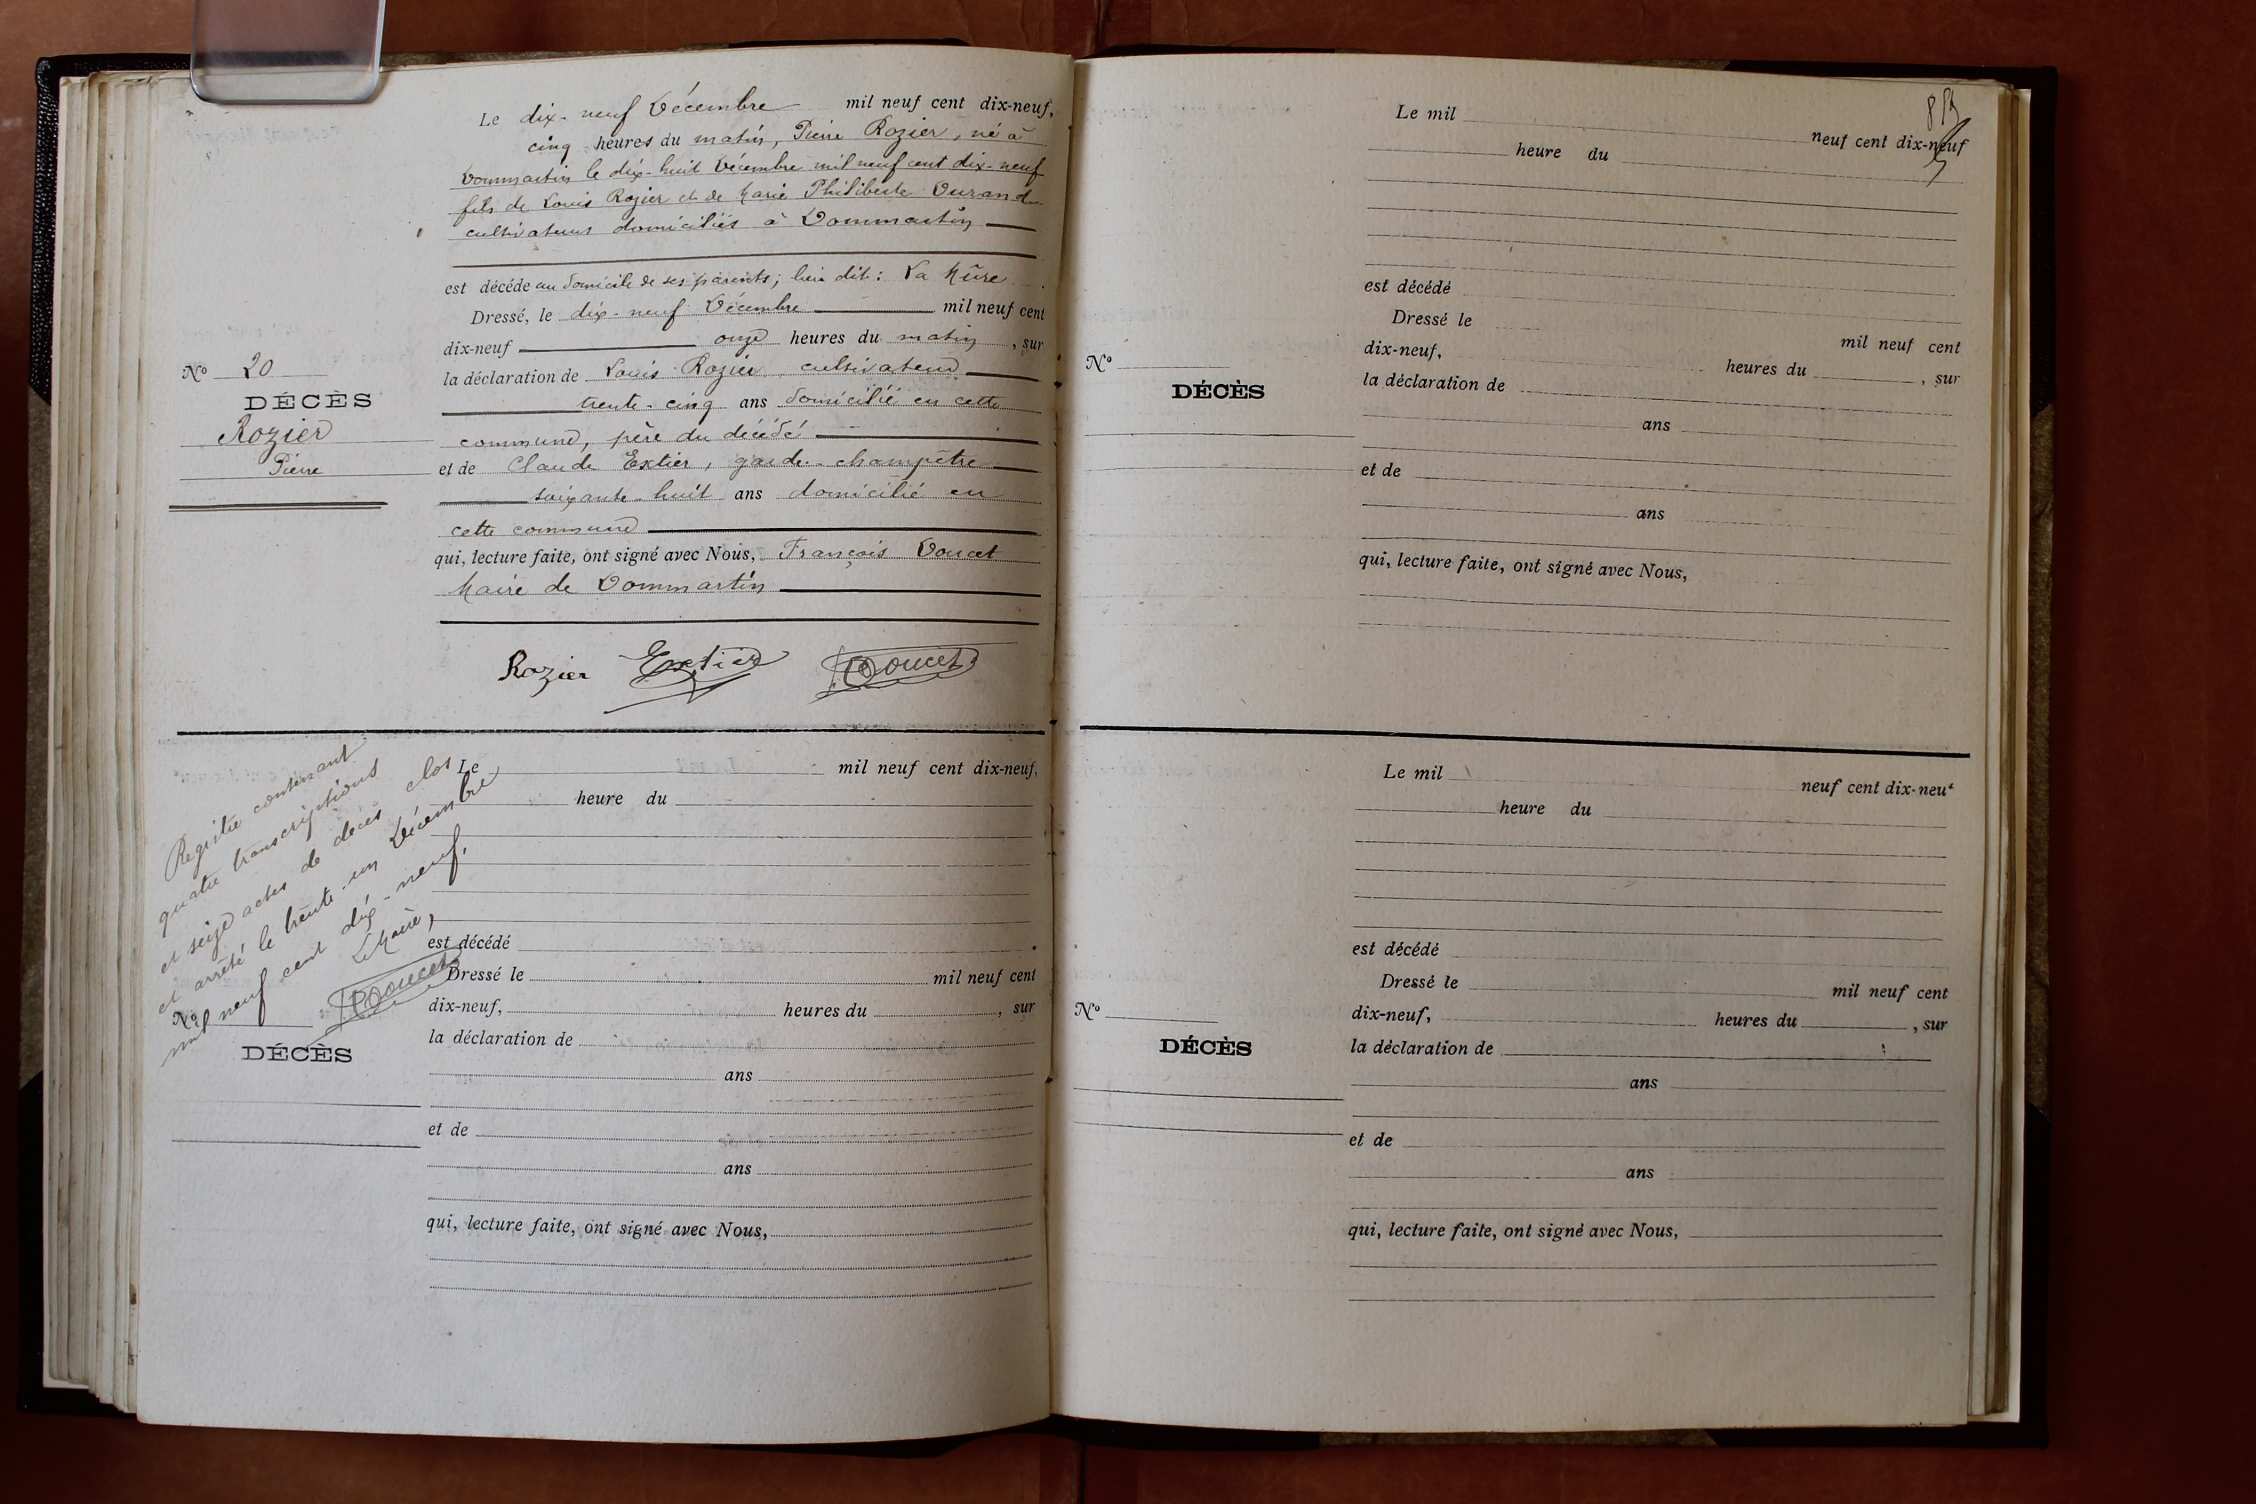 Le dix-neuf Décembre mil neuf cent dix-neuf,
cinq heures du matin, Pierre Rozier, né à
Dommartin le dix-huit Décembre mil neuf cent dix-neuf
fils de Louis Rozier et de Marie Philiberte Durand
cultivateurs domiciliés à Dommartin
est décédé au domicile de ses parents; lieu dit: La Mûre
Dressé, le dix-neuf Décembre mil neuf cent
dix-neuf onze heures du matin, sur
la déclaration de Louis Rozier cultivateur
trente-cinq ans domicilié en cette
commune, père du décédé
et de Claude Extier, garde-champêtre
soixante-huit ans domicilié en
cette commune
qui, lecture faite, ont signé avec Nous, François Doucet
Maire de Dommartin
Rozier Extier Doucet
Nº 20
DÉCÈS
Rozier
Pierre
Registre contenant
quatre transcriptions
et seize actes de décès clos
et arrêté le trente-un Décembre
mil neuf cent dix-neuf.
Le Maire,
Doucet
Nº
DÉCÈS
Le mil neuf cent dix-neuf,
heure du
est décédé
Dressé le mil neuf cent
dix-neuf, heures du , sur
la déclaration de
ans
et de
ans
qui, lecture faite, ont signé avec Nous,
Le mil
neuf cent dix-neuf
heure du
est décédé
Dressé le
mil neuf cent
dix-neuf, heures du , sur
la déclaration de
ans
et de
ans
qui, lecture faite, ont signé avec Nous,
Nº
DÉCÈS
Le mil
neuf cent dix-neuf
heure du
est décédé
Dressé le mil neuf cent
dix-neuf, heures du , sur
la déclaration de
ans
et de
ans
qui, lecture faite, ont signé avec Nous,
Nº
DÉCÈS